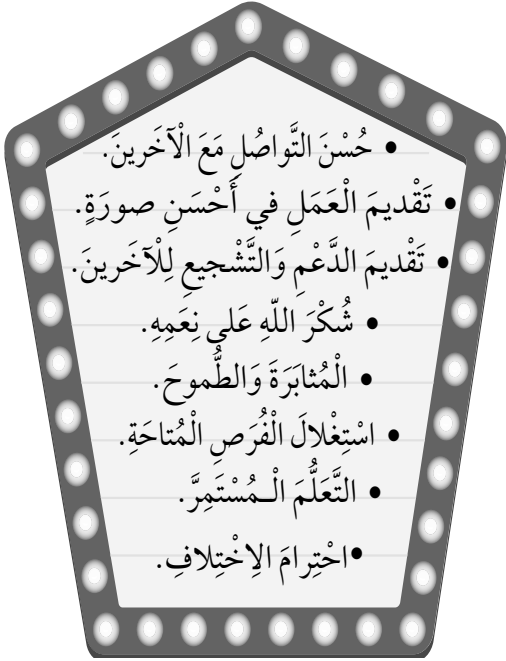 • حُسْنَ التَّواصُلِ مَعَ الْآخَرينَ.
• تَقْديمَ الْعَمَلِ في أَحْسَنِ صورَةٍ.
• تَقْديمَ الدَّعْمِ وَالتَّشْجيعِ لِلْآخَرينَ.
• شُكْرَ اللّهِ عَلى نِعَمِهِ.
• الْمُثابَرَةَ وَالطُّموحَ.
• اسْتِغْلالَ الْفُرَصِ الْمُتاحَةِ.
• التَّعَلُّمَ الْـمُسْتَمِرَّ.
•احْتِرامَ الِاخْتِلافِ.